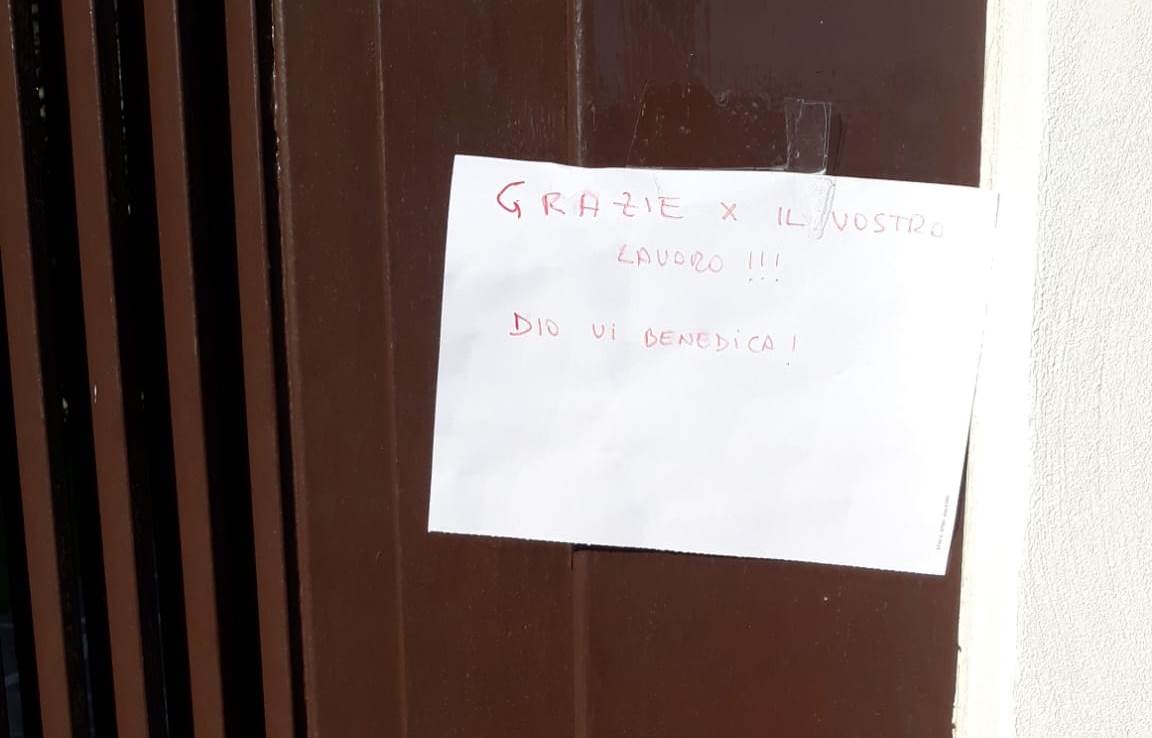 GRAZIE X IL VOSTRO
LAVORO !!!
DIO Vi BENEDiCA!